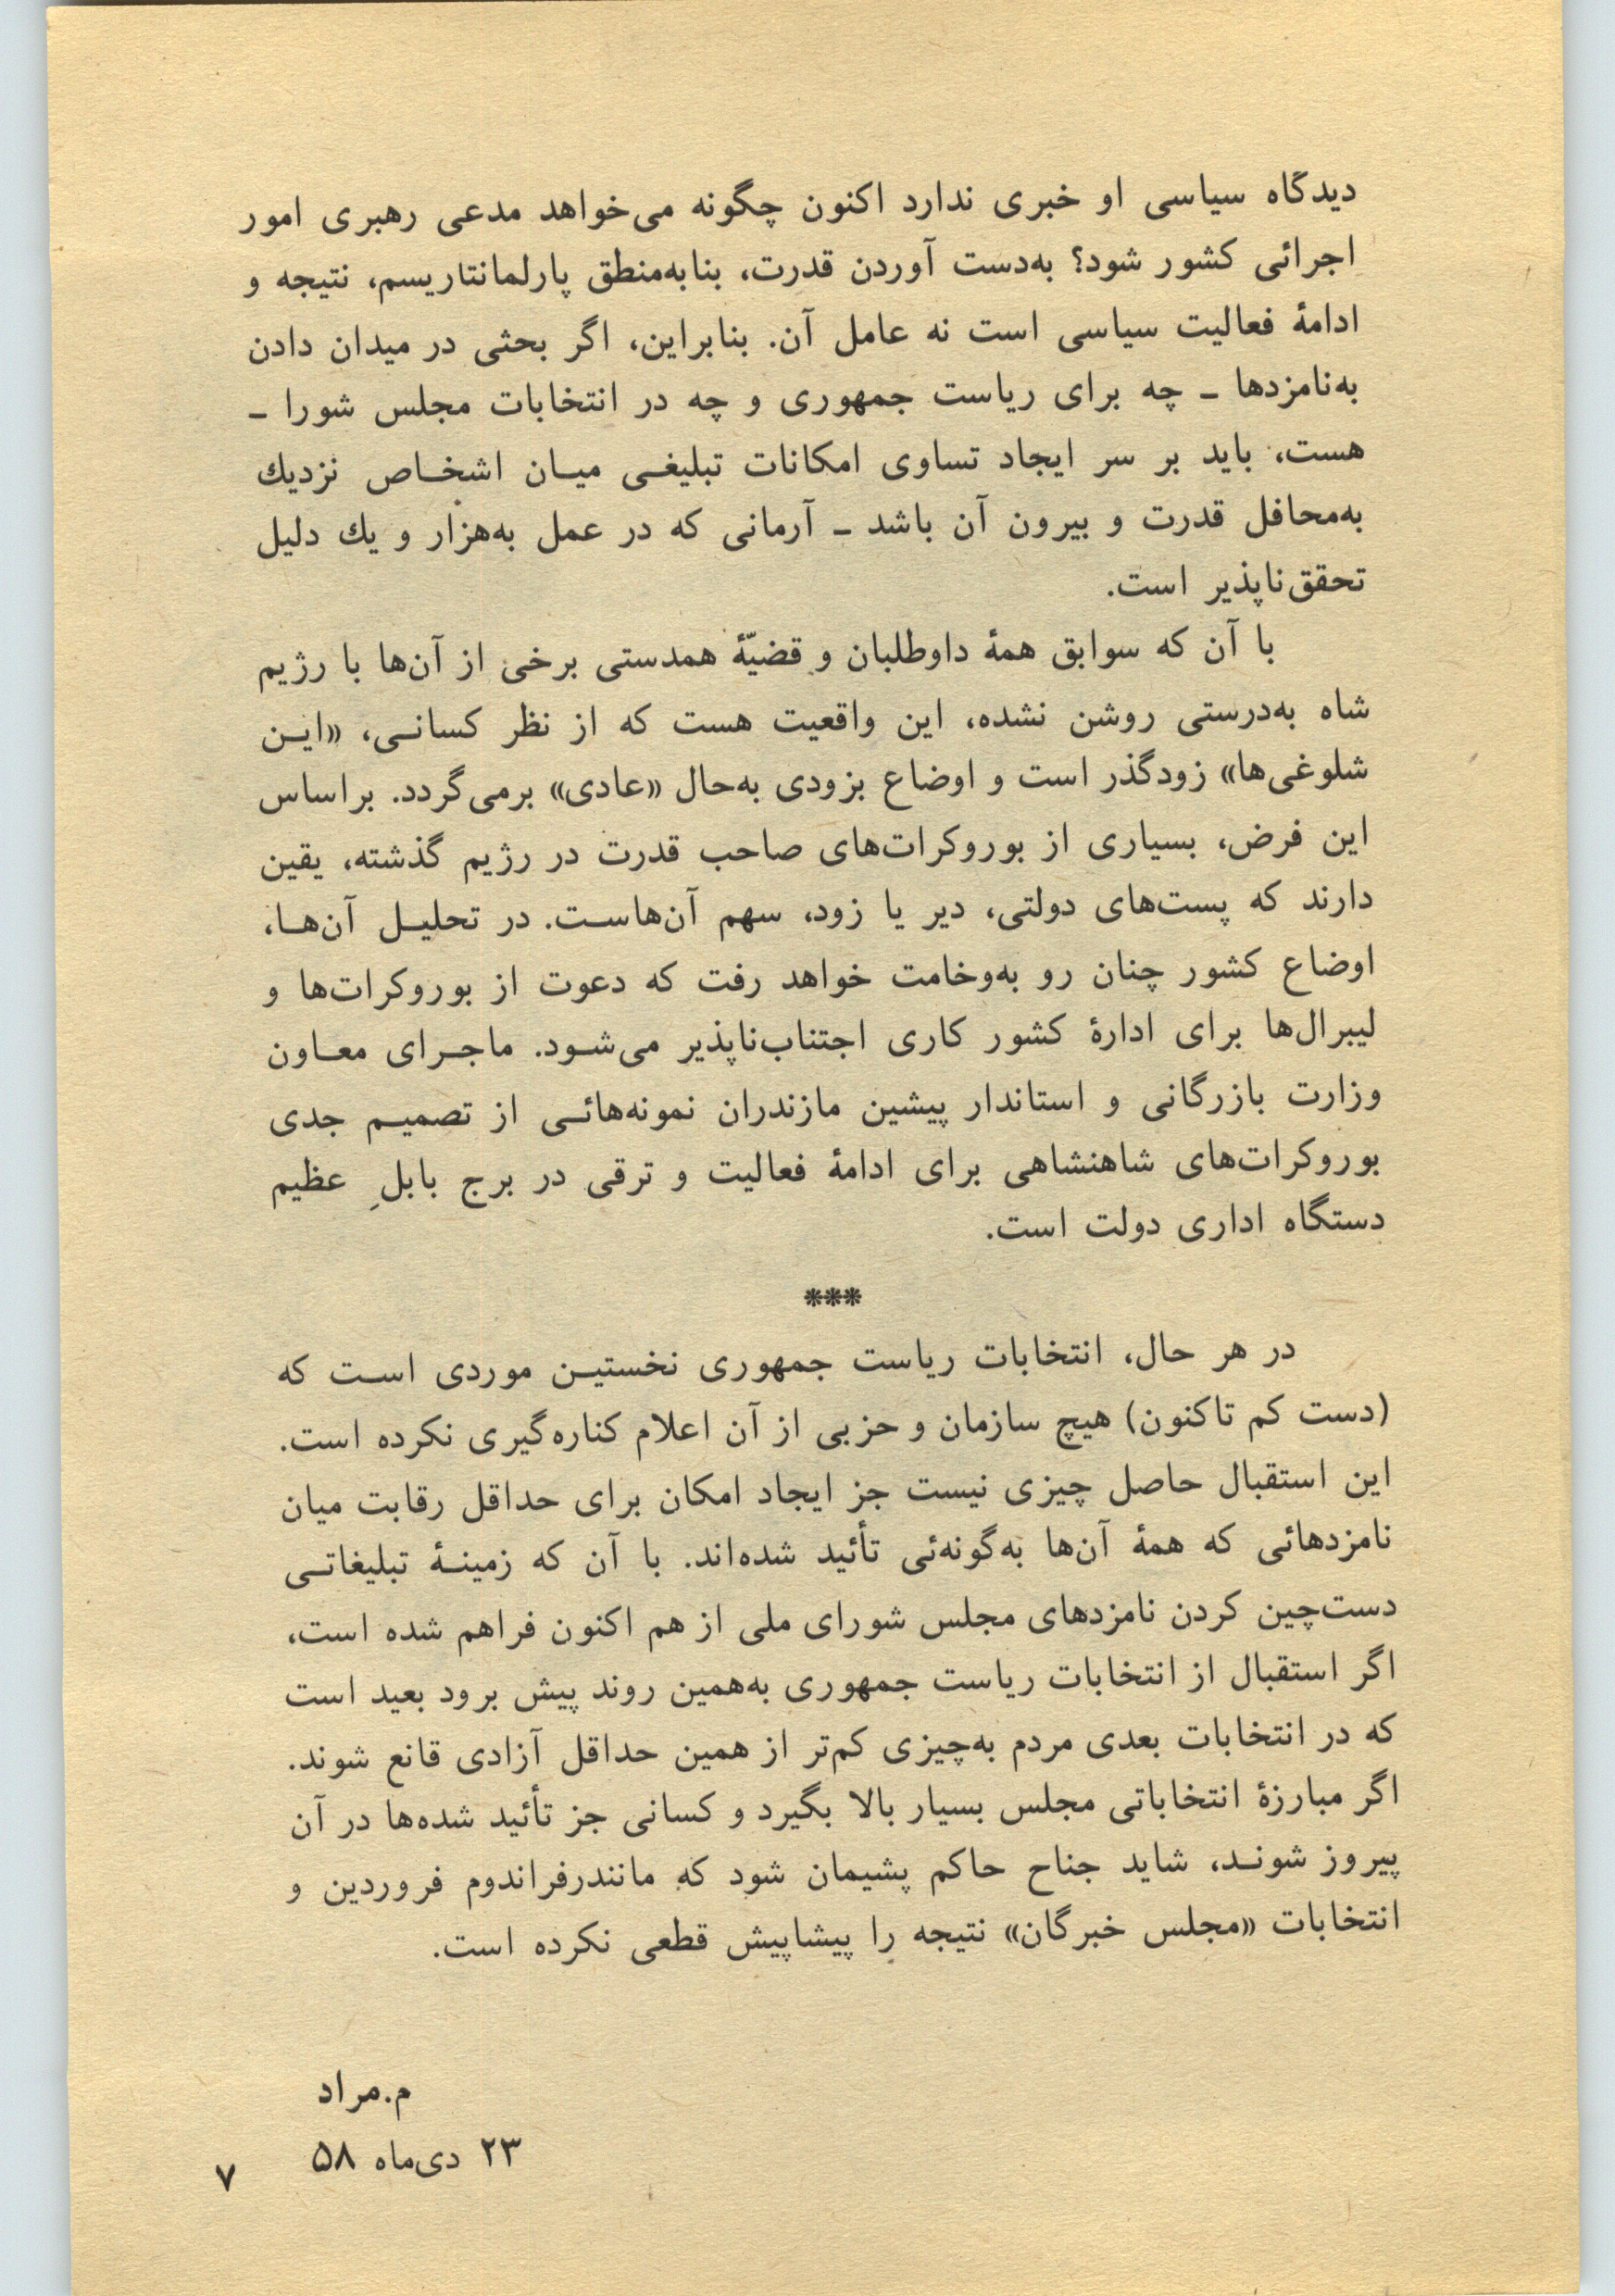 دیدگاه سیاسی او خبری ندارد اکنون چگونه می‌خواهد مدعی رهبری امور
اجرائی کشور شود؟ به‌دست آوردن قدرت، بنابه‌منطق پارلمانتاریسم، نتیجه و
ادامهٔ فعالیت سیاسی است نه عامل آن. بنابراین، اگر بحثی در میدان دادن
به‌نامزدها ـ چه برای ریاست جمهوری و چه در انتخابات مجلس شورا ـ
هست، باید بر سر ایجاد تساوی امکانات تبلیغـی میـان اشخـاص نزدیك
به‌محافل قدرت و بیرون آن باشد ـ آرمانی که در عمل به‌هزار و یك دلیل
تحقق‌ناپذیر است.
با آن که سوابق همهٔ داوطلبان و قضیّهٔ همدستی برخی از آن‌ها با رژیم
شاه به‌درستی روشن نشده، این واقعیت هست که از نظر کسانـی، «ایـن
شلوغی‌ها» زودگذر است و اوضاع بزودی به‌حال «عادی» برمی‌گردد. براساس
این فرض، بسیاری از بوروکرات‌های صاحب قدرت در رژیم گذشته، یقین
دارند که پست‌های دولتی، دیر یا زود، سهم آن‌هاسـت. در تحلیـل آن‌هـا،
اوضاع کشور چنان رو به‌وخامت خواهد رفت که دعوت از بوروکرات‌ها و
لیبرال‌ها برای ادارهٔ کشور کاری اجتناب‌ناپذیر می‌شـود. ماجـرای معـاون
وزارت بازرگانی و استاندار پیشین مازندران نمونه‌هائـی از تصمیـم جدی
بوروکرات‌های شاهنشاهی برای ادامهٔ فعالیت و ترقی در برج بابلِ عظیم
دستگاه اداری دولت است.
***
در هر حال، انتخابات ریاست جمهوری نخستیـن موردی اسـت که
(دست کم تاکنون) هیچ سازمان و حزبی از آن اعلام کناره‌گیری نکرده است.
این استقبال حاصل چیزی نیست جز ایجاد امکان برای حداقل رقابت میان
نامزدهائی که همهٔ آن‌ها به‌گونه‌ئی تأئید شده‌اند. با آن که زمینـهٔ تبلیغاتـی
دست‌چین کردن نامزدهای مجلس شورای ملی از هم اکنون فراهم شده است،
اگر استقبال از انتخابات ریاست جمهوری به‌همین روند پیش برود بعید است
که در انتخابات بعدی مردم به‌چیزی کم‌تر از همین حداقل آزادی قانع شوند.
اگر مبارزهٔ انتخاباتی مجلس بسیار بالا بگیرد و کسانی جز تأئید شده‌ها در آن
پیروز شونـد، شاید جناح حاکم پشیمان شود که مانندرفراندوم فروردین و
انتخابات «مجلس خبرگان» نتیجه را پیشاپیش قطعی نکرده است.
م.مراد
۲۳ دی‌ماه ۵۸
۷